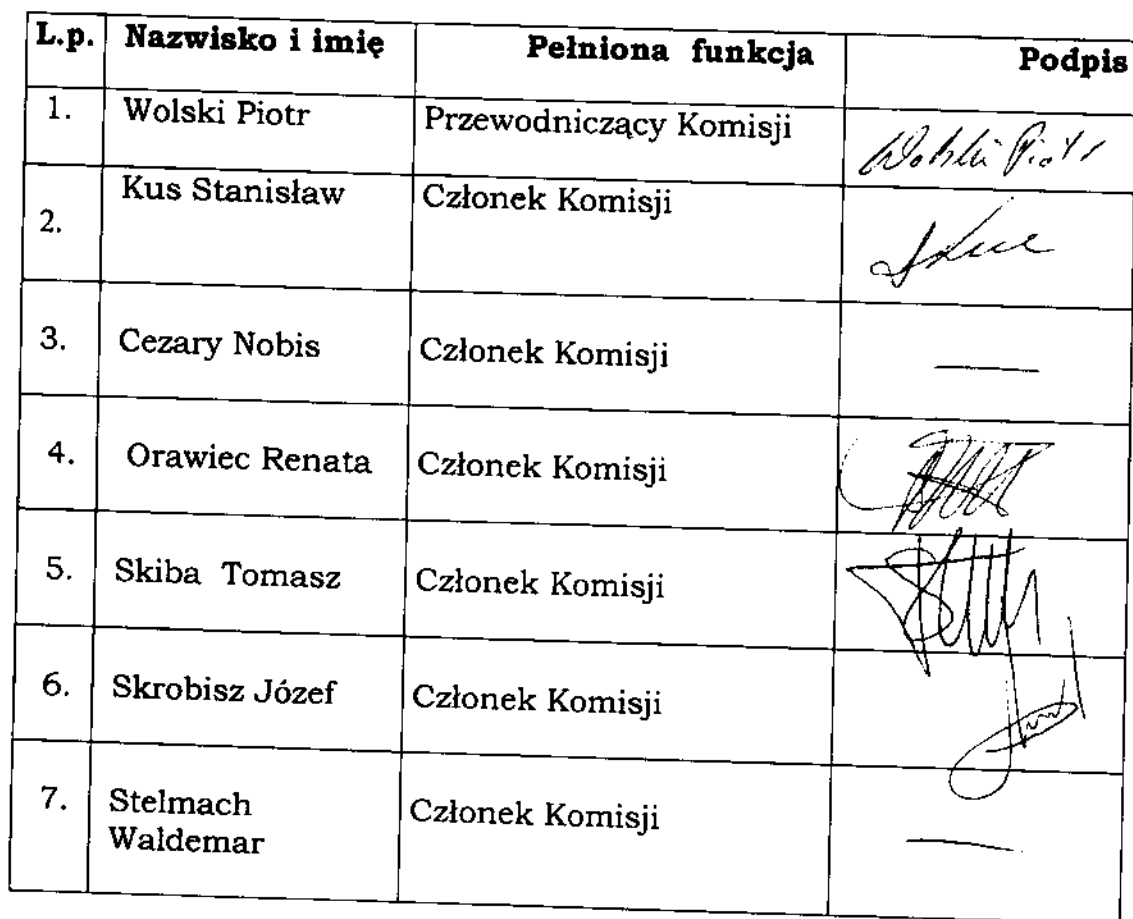 L.p. Nazwisko i imię Pełniona funkcja Podpis
1. Wolski Piotr Przewodniczący Komisji Wolski Piotr
2. Kus Stanisław Członek Komisji
3. Cezary Nobis Członek Komisji —
4. Orawiec Renata Członek Komisji
5. Skiba Tomasz Członek Komisji
6. Skrobisz Józef Członek Komisji
7. Stelmach Członek Komisji —
Waldemar